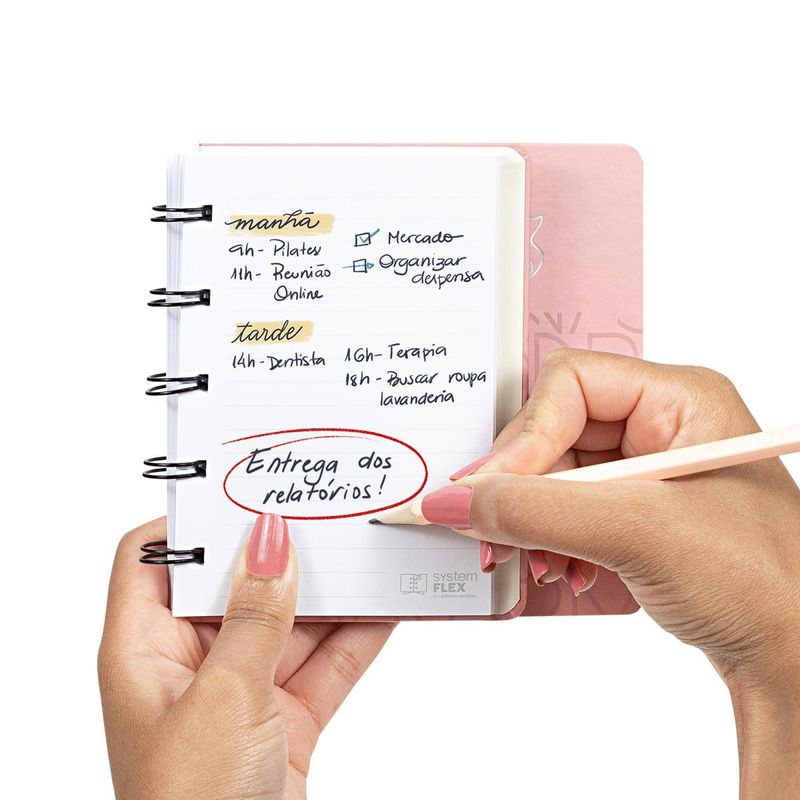 manhã
9h- Pilates
11h- Reunião
Online
Mercado
Organizar
despensa
tarde
14h-Dentista
16h- Terapia
18h-Buscar roupa
lavanderia
Entrega dos
relatórios!
system
FLEX